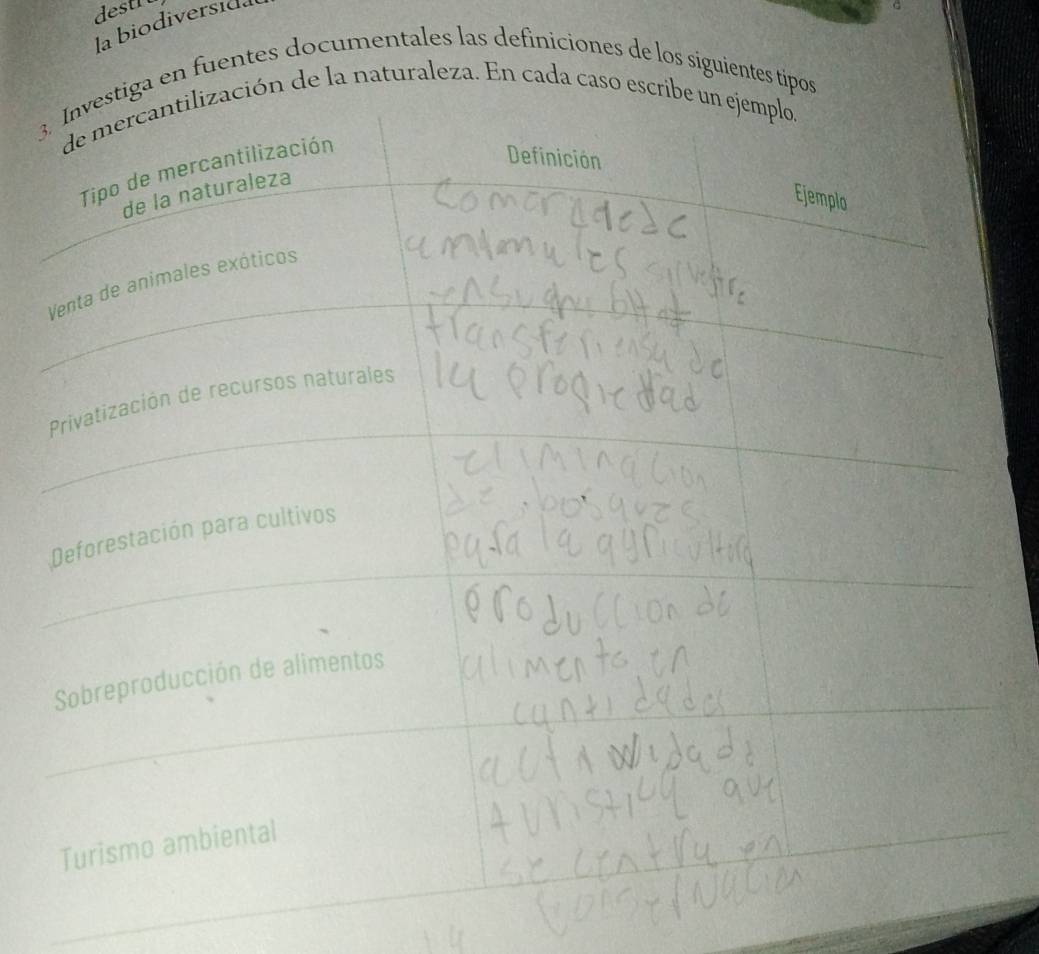 la biodiversida
3. Investiga en fuentes documentales las definiciones de los siguientes tipos
de mercantilización de la naturaleza. En cada caso escribe un ejemplo.
Tipo de mercantilización
de la naturaleza
Definición
Ejemplo
Venta de animales exóticos
silvestre
Privatización de recursos naturales
de
la
Deforestación para cultivos
eliminacion
de bosques
para la agricultura
Sobreproducción de alimentos
produccion de
alimento en
cantidades
Turismo ambiental
turistica que
se centra en